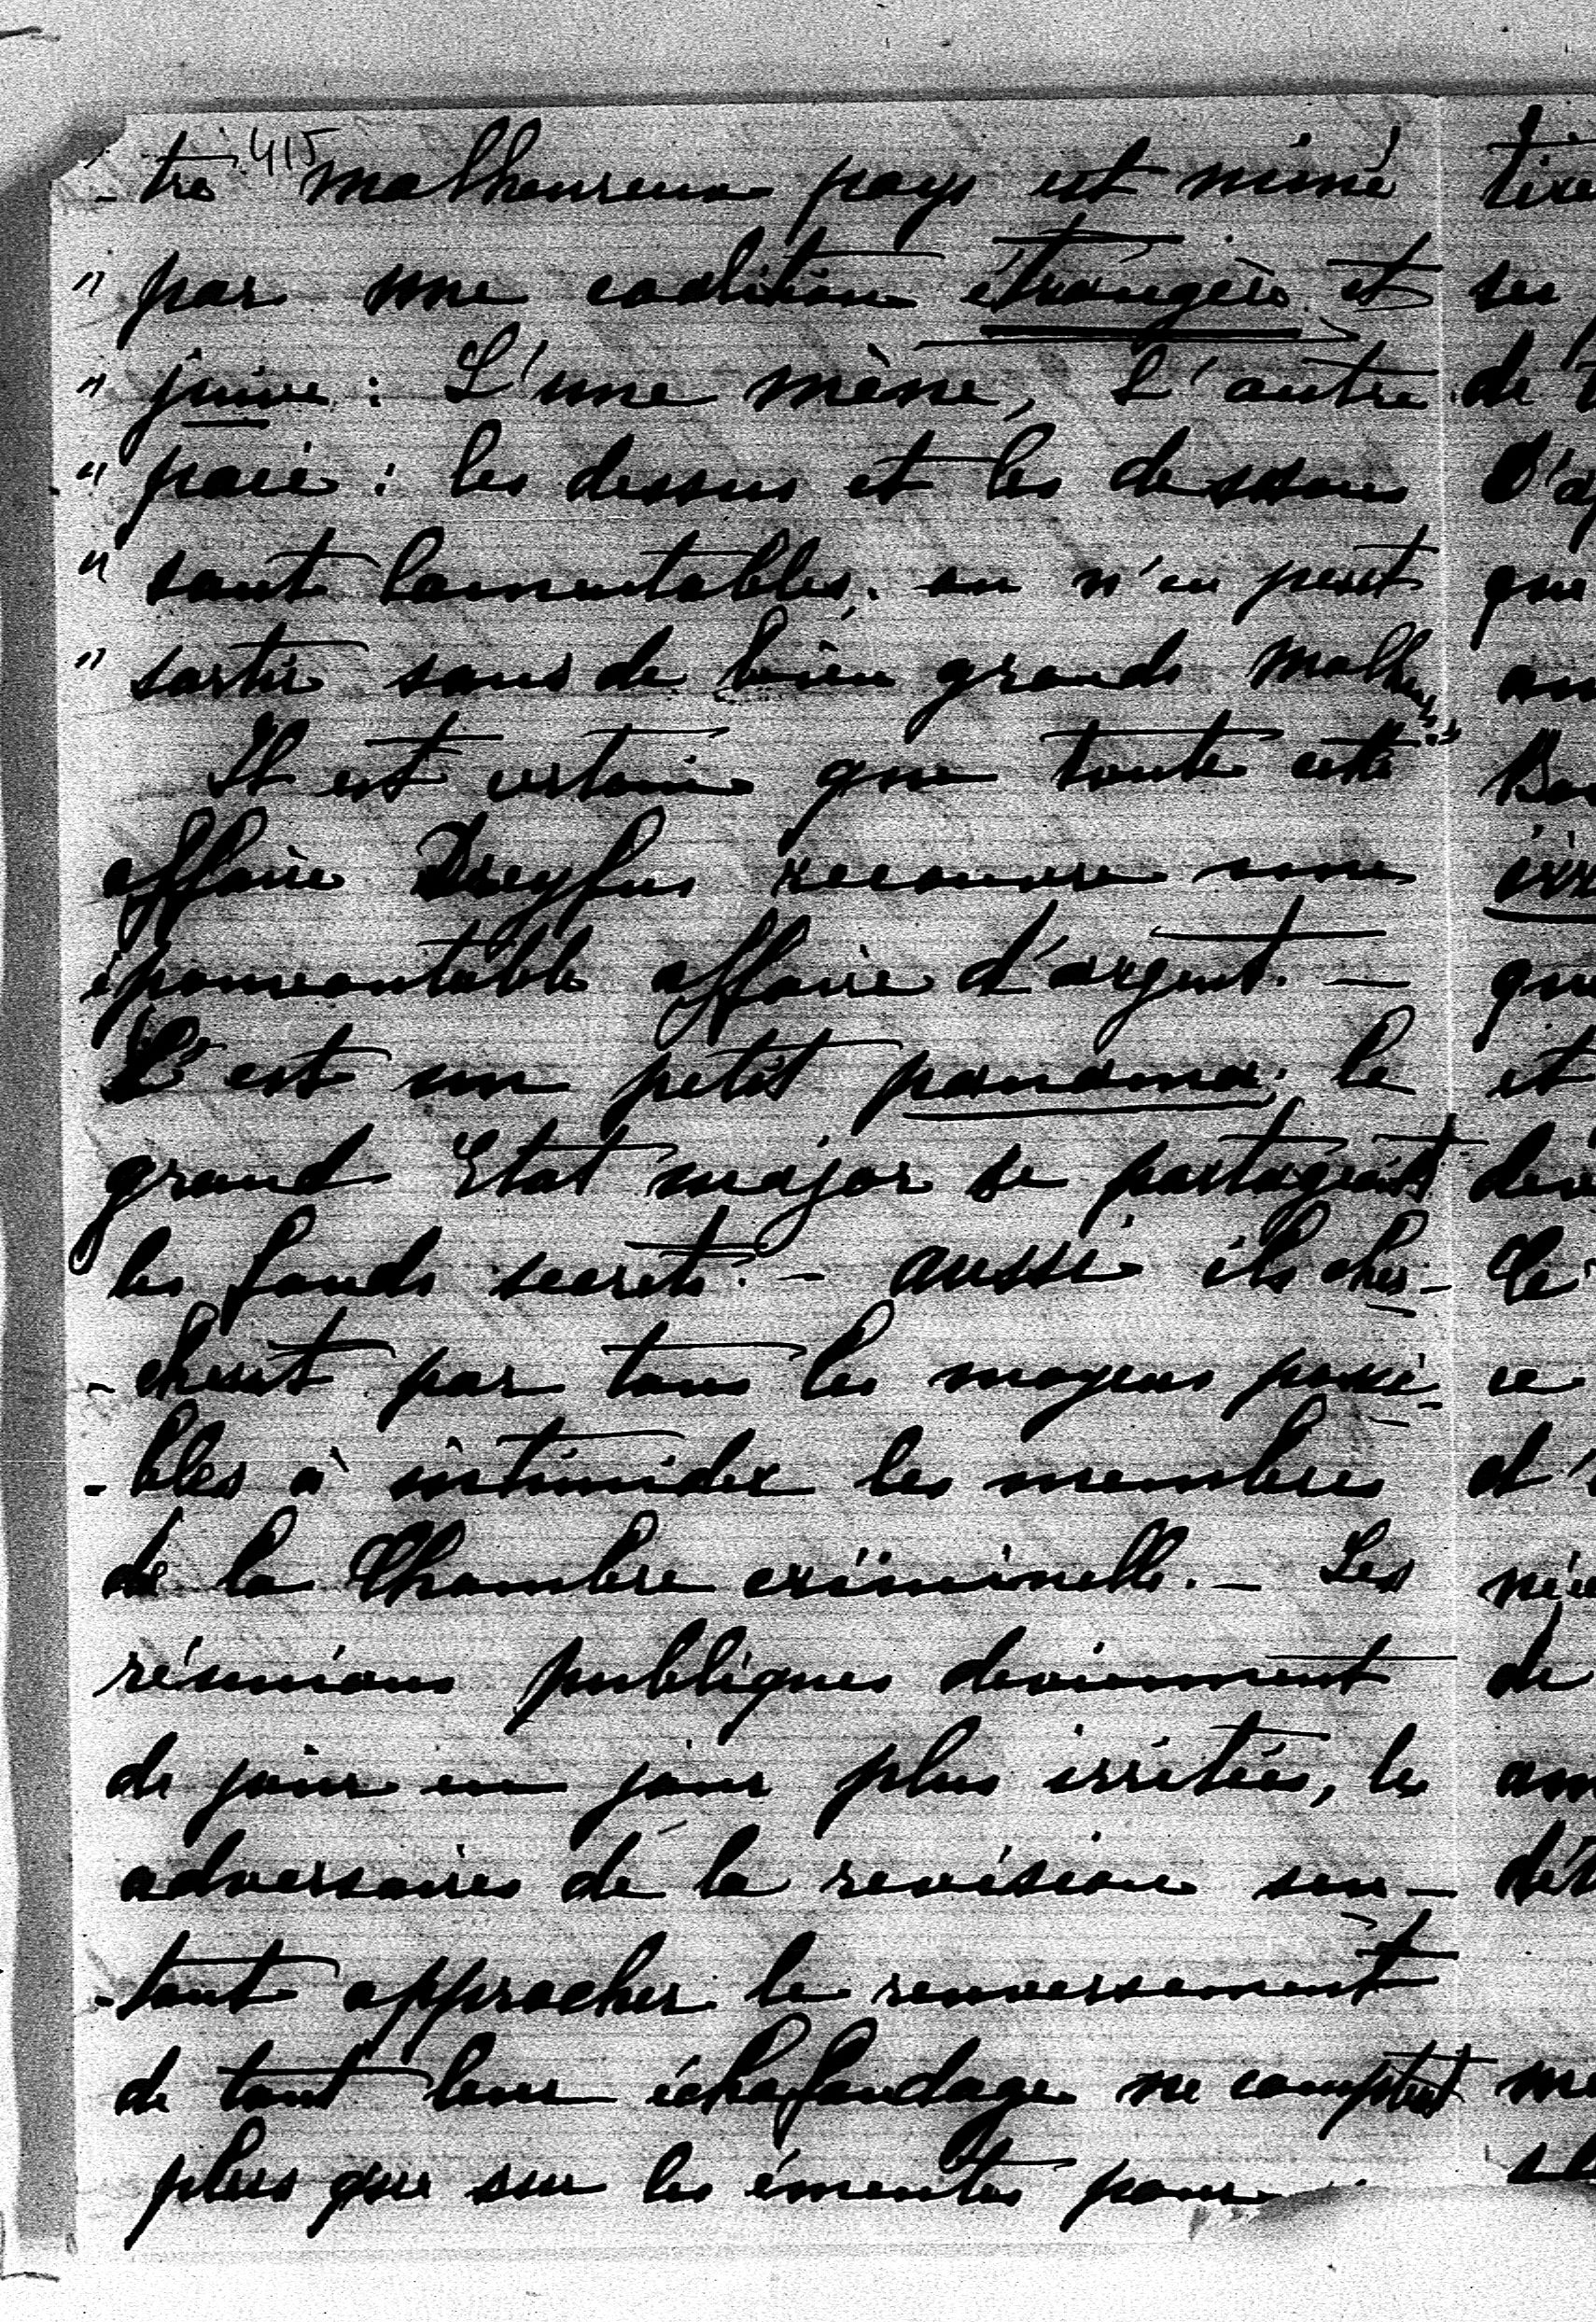 415
" -tre malheureux pays est miné
" par une coalition étrangère et
" juive : L'une mène, L'autre
" paie : les dessus et les dessous
" sont lamentables. on n'en peut
" sortir sans de bien grands malheurs"
Il est certain que toute cette
affaire Dreyfus recouvre une
épouvantable affaire d'argent. —
C'est un petit panama ; le
grand Etat major se partageait
les fonds secrets. — aussi ils cher-
-chent par tous les moyens possi-
-bles à intimider les membres
de la Chambre criminelle. — Les
réunions publiques deviennent
de jour en jour plus irritées, les
adversaires de la revision sen-
-tant approcher le renversement
de tout leur échafaudage ne comptent
plus que sur les émeutes pour